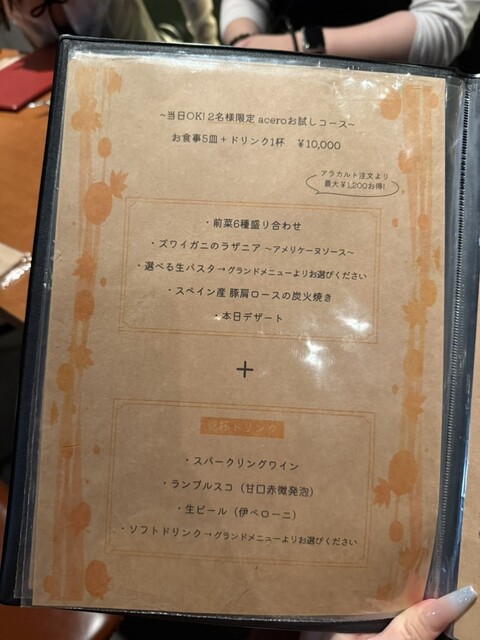 ~当日OK! 2名様限定 aceroお試しコース~
お食事5皿 + ドリンク1杯　¥10,000
アラカルト注文より
最大¥1,200お得!
・前菜6種盛り合わせ
・ズワイガニのラザニア ~アメリケーヌソース~
・選べる生パスタ→グランドメニューよりお選びください
・スペイン産 豚肩ロースの炭火焼き
・本日デザート
+
ドリンク
・スパークリングワイン
・ランブルスコ（甘口赤微発泡）
・生ビール（伊ペローニ）
・ソフトドリンク→グランドメニューよりお選びください